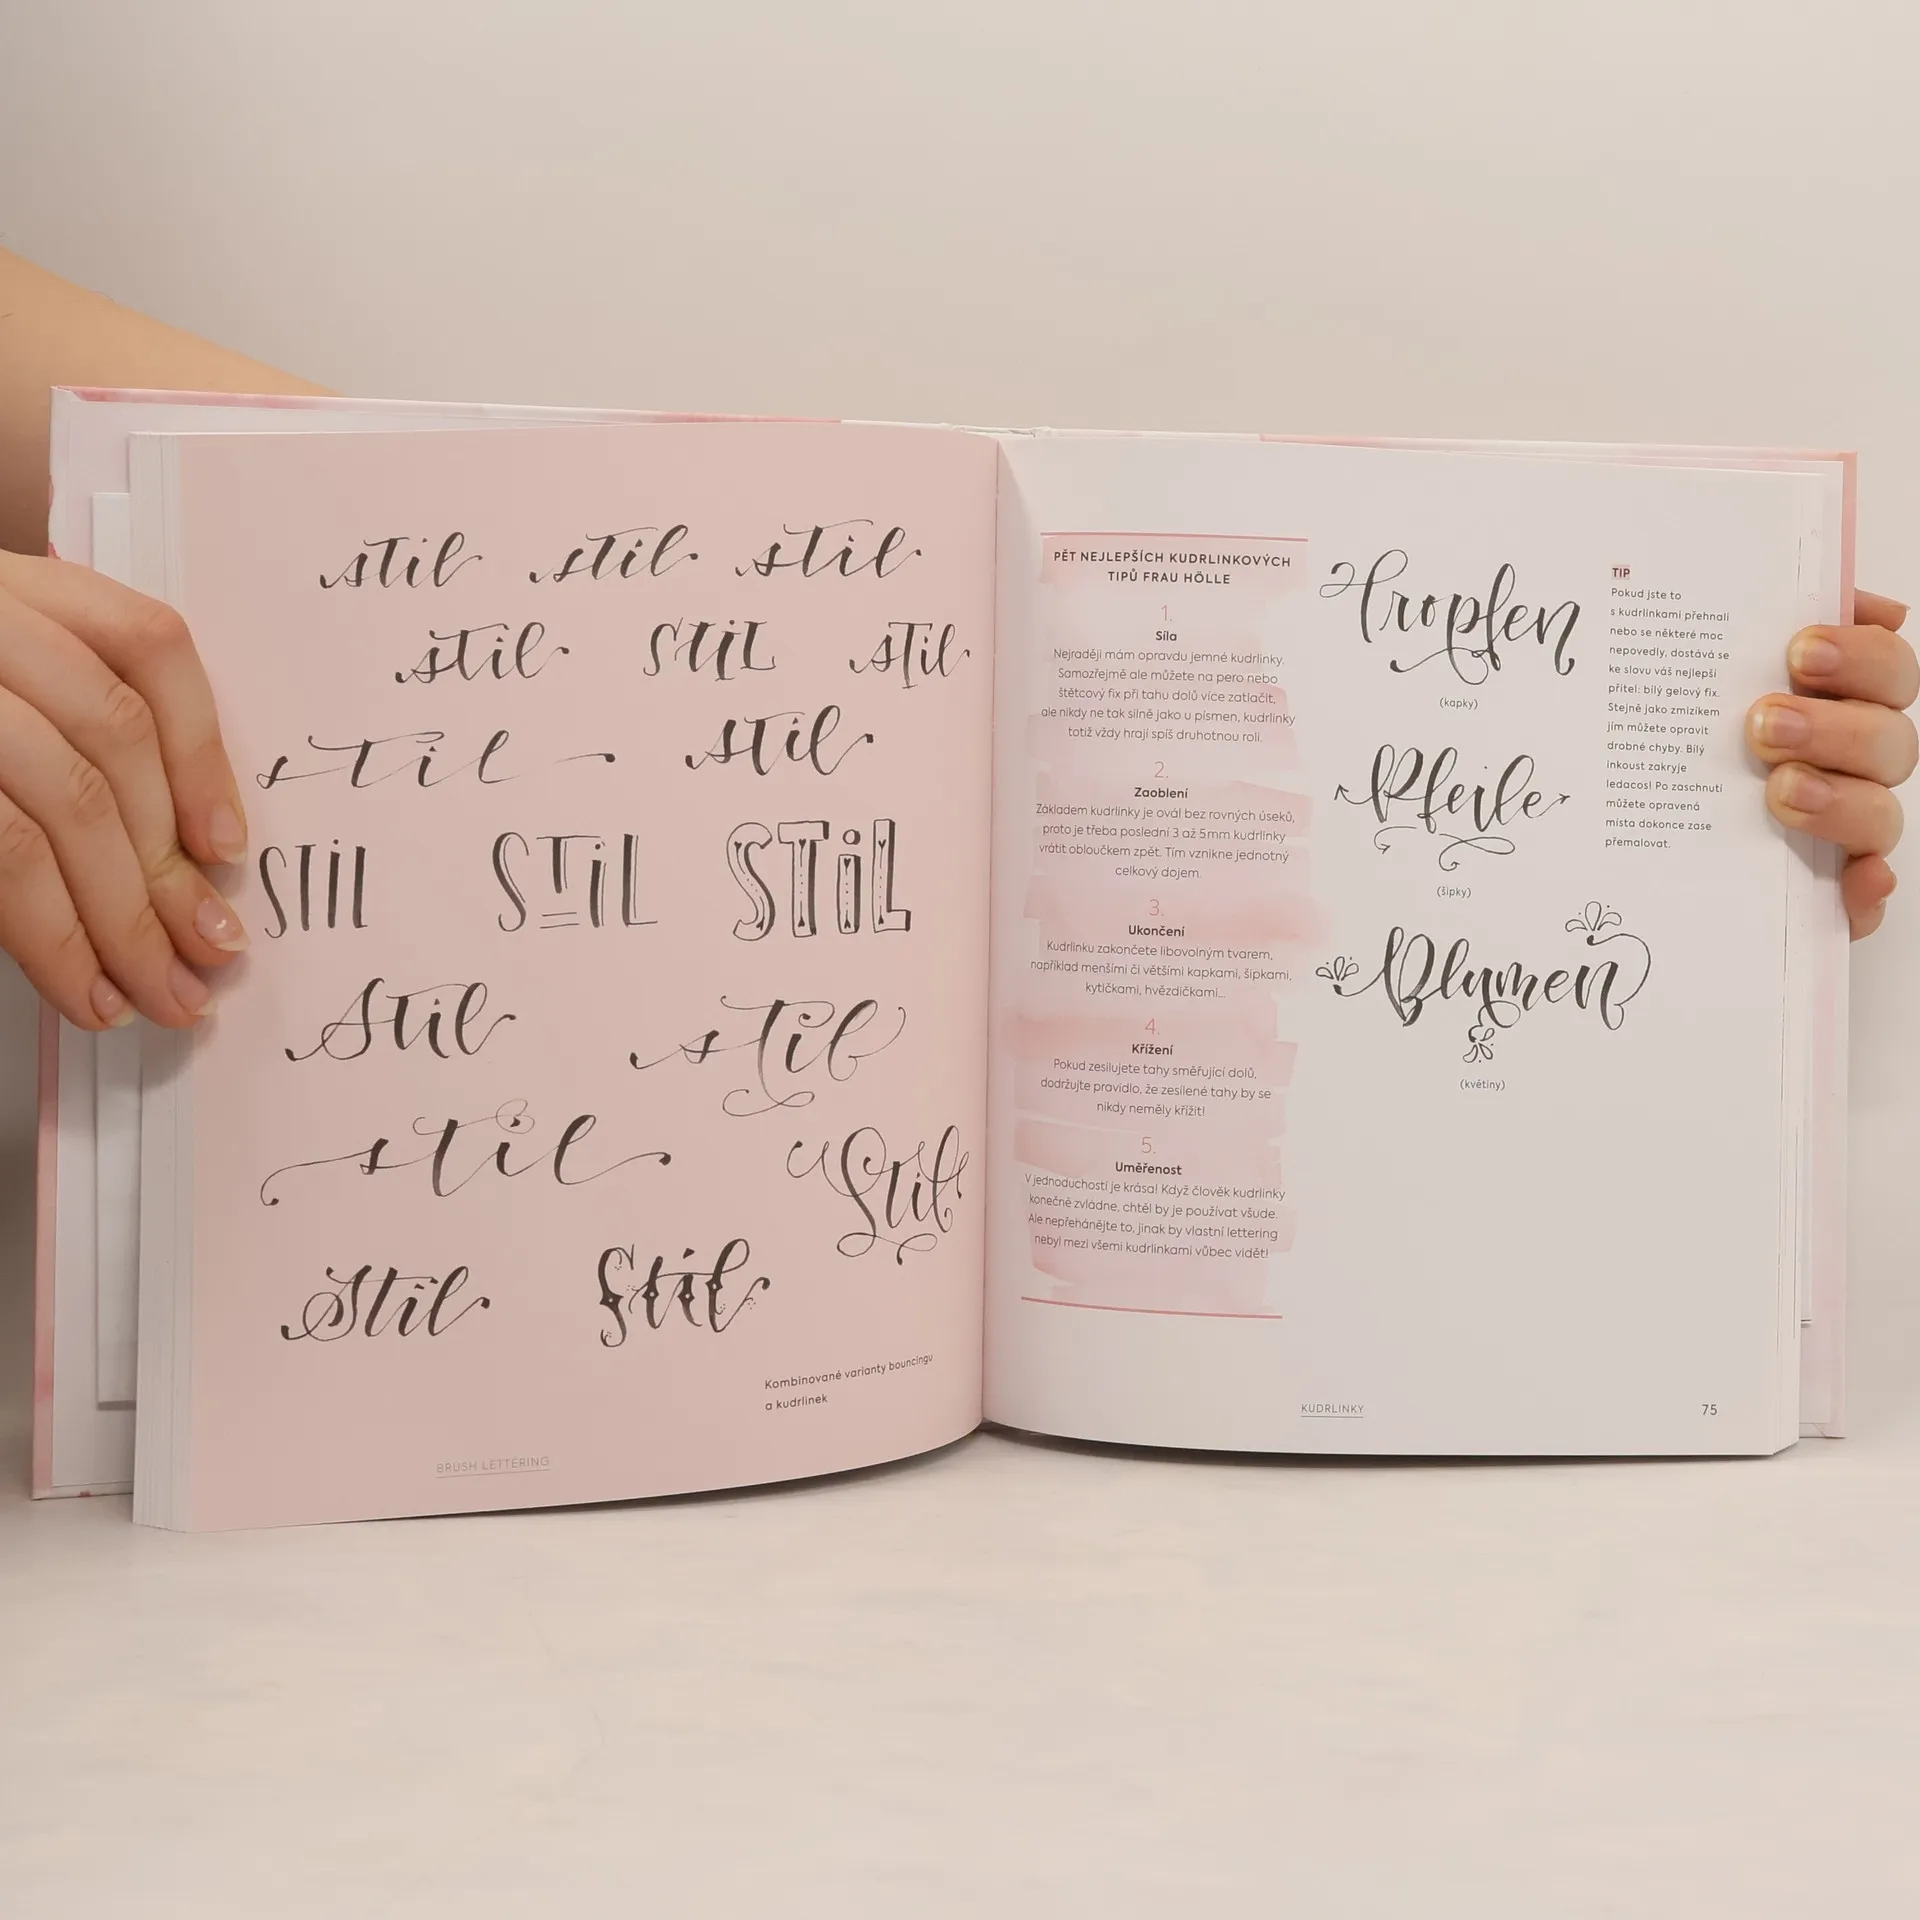 stil stil stil
stil STiL sTil
stil stil
STIL STiL STiL
Stil stil
stil Stil
Stil Stil
Kombinované varianty bouncingu
a kudrlinek
BRUSH LETTERING
PĚT NEJLEPŠÍCH KUDRLINKOVÝCH
TIPŮ FRAU HÖLLE
1.
Síla
Nejraději mám opravdu jemné kudrlinky.
Samozřejmě ale můžete na pero nebo
štětcový fix při tahu dolů více zatlačit,
ale nikdy ne tak silně jako u písmen, kudrlinky
totiž vždy hrají spíš druhotnou roli.
2.
Zaoblení
Základem kudrlinky je ovál bez rovných úseků,
proto je třeba poslední 3 až 5mm kudrlinky
vrátit obloučkem zpět. Tím vznikne jednotný
celkový dojem.
3.
Ukončení
Kudrlinku zakončete libovolným tvarem,
například menšími či většími kapkami, šipkami,
kytičkami, hvězdičkami...
4.
Křížení
Pokud zesilujete tahy směřující dolů,
dodržujte pravidlo, že zesílené tahy by se
nikdy neměly křížit!
5.
Uměřenost
V jednoduchosti je krása! Když člověk kudrlinky
konečně zvládne, chtěl by je používat všude.
Ale nepřehánějte to, jinak by vlastní lettering
nebyl mezi všemi kudrlinkami vůbec vidět!
Tropfen
(kapky)
Pfeile
(šipky)
Blumen
(květiny)
TIP
Pokud jste to
s kudrlinkami přehnali
nebo se některé moc
nepovedly, dostává se
ke slovu váš nejlepší
přítel: bílý gelový fix.
Stejně jako zmizíkem
jím můžete opravit
drobné chyby. Bílý
inkoust zakryje
ledacos! Po zaschnutí
můžete opravená
místa dokonce zase
přemalovat.
KUDRLINKY
75